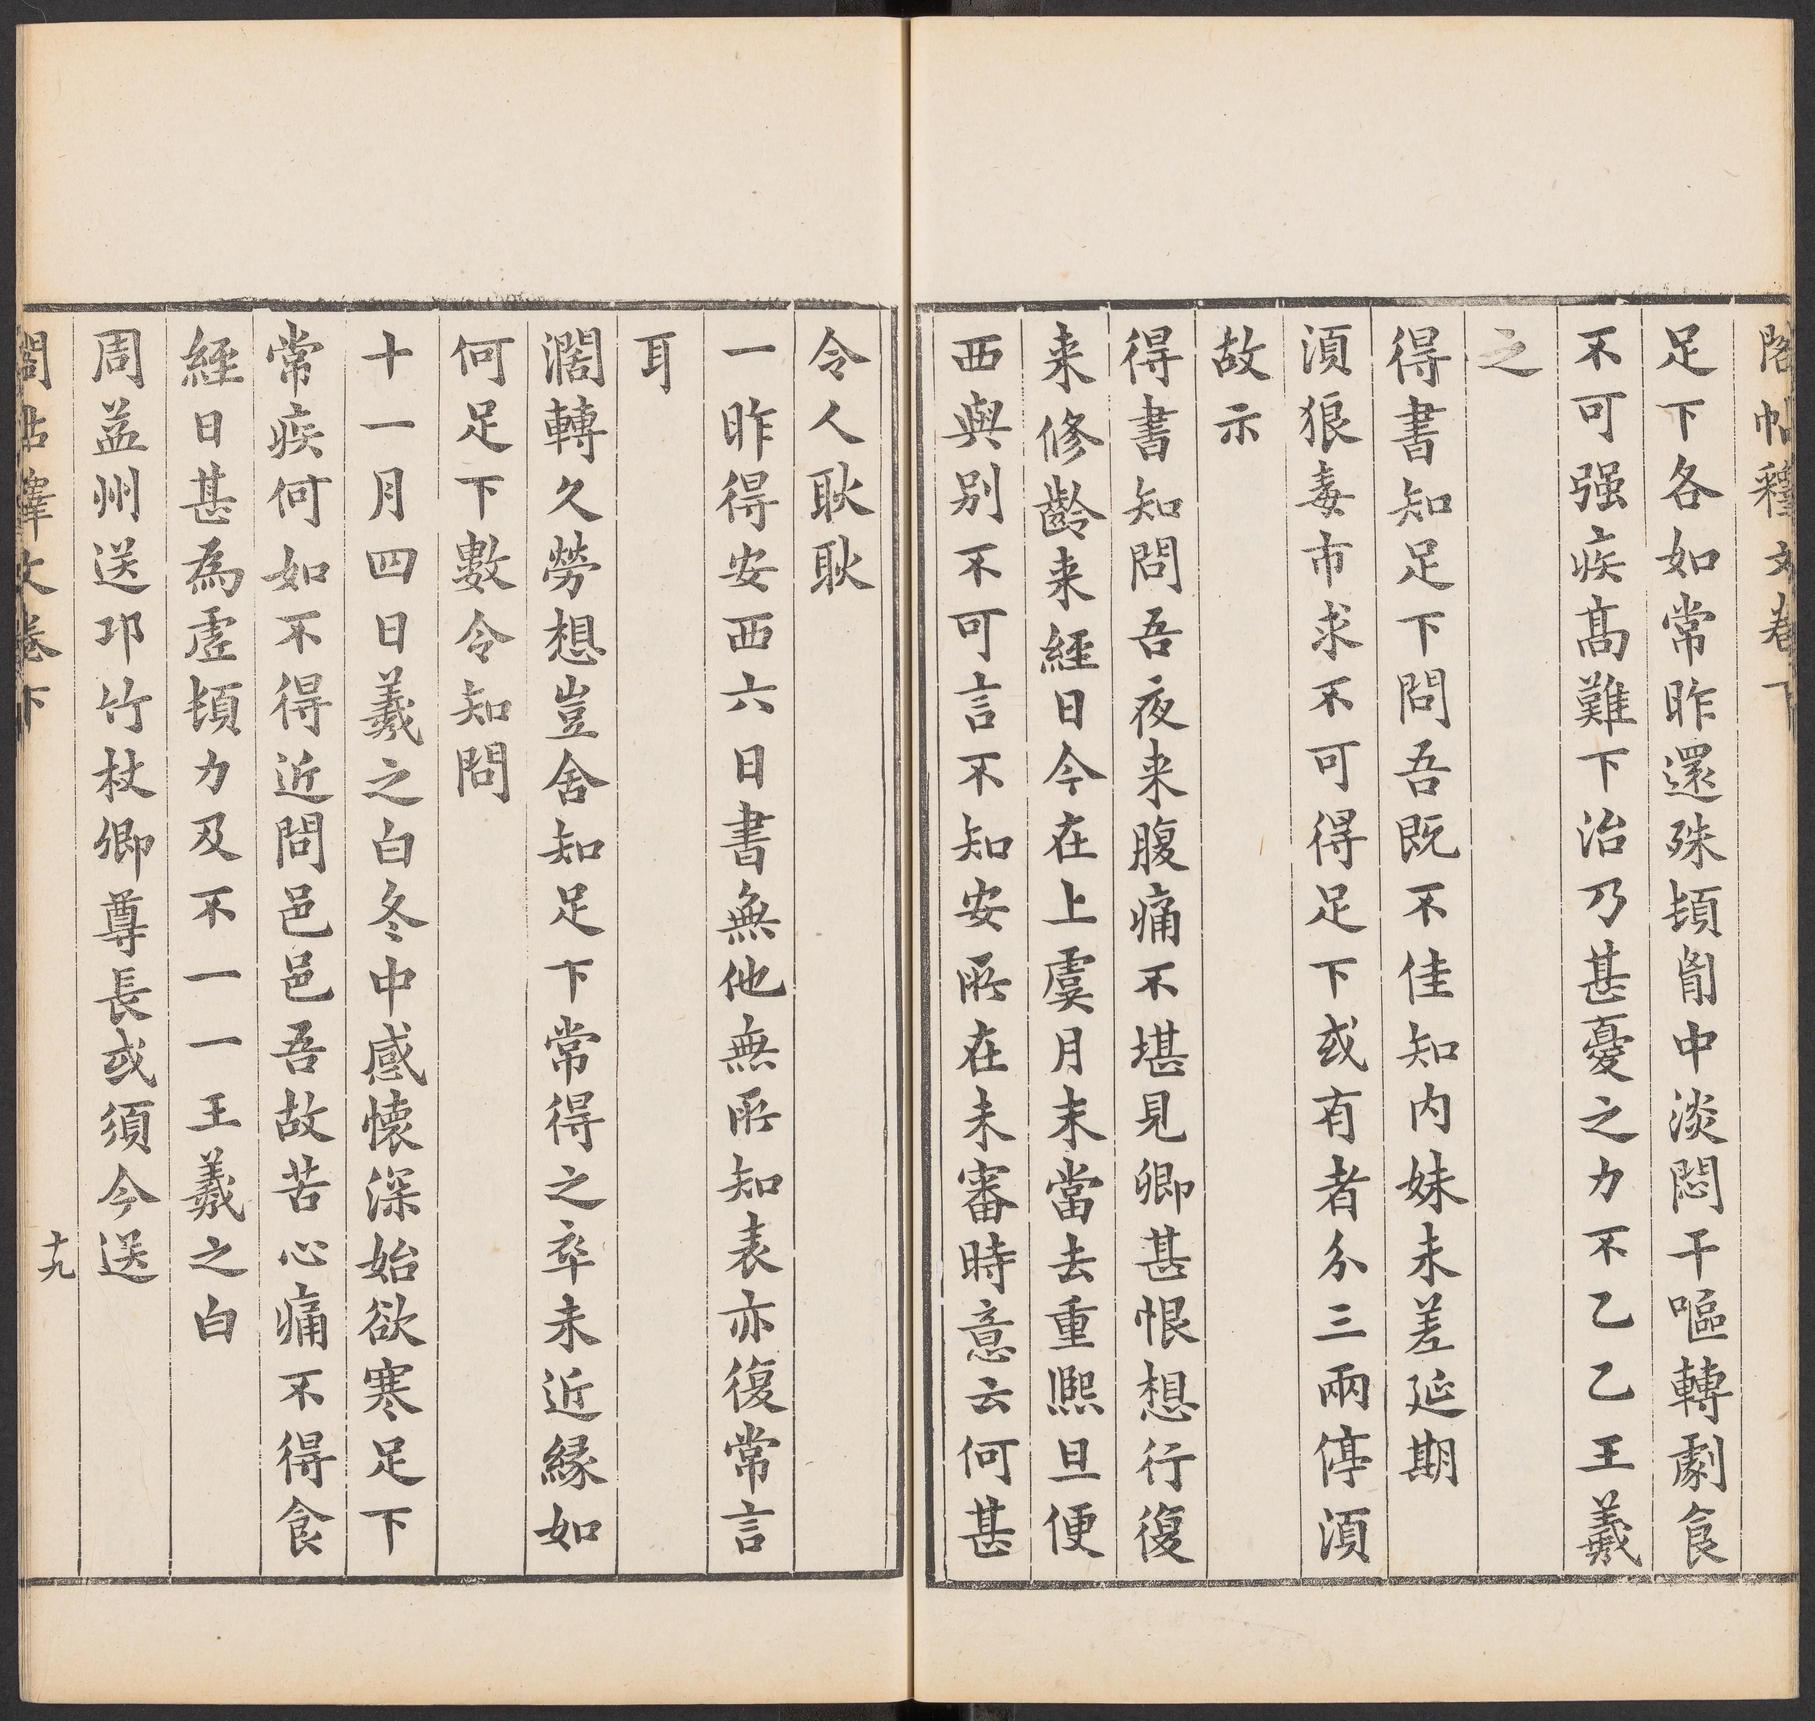 閣帖釋文卷下
足下各如常昨還殊頓胷中淡悶干嘔轉劇食
不可强疾髙難下治乃甚憂之力不乙乙王羲
之
得書知足下問吾既不佳知内妹未差延期
湏狼毒市求不可得足下或有者分三兩停湏
故示
得書知問吾夜来腹痛不堪見卿甚恨想行復
来修齡来經日今在上虞月末當去重熈旦便
西與别不可言不知安所在未審時意云何甚
令人耿耿
一昨得安西六日書無他無所知表亦復常言
耳
濶轉久勞想豈舍知足下常得之卒未近縁如
何足下數令知問
十一月四日羲之白冬中感懐深始欲寒足下
常疾何如不得近問邑邑吾故苦心痛不得食
經日甚為虚頓力及不一一王羲之白
周益州送邛竹杖卿尊長或須今送
閣帖釋文卷下
十九